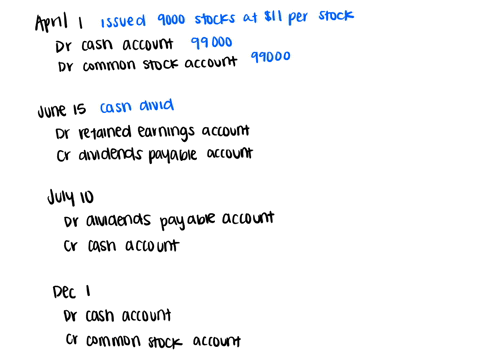 April 1 issued 9000 stocks at $11 per stock
Dr cash account 99000
Dr common stock account 99000
June 15 cash divid
Dr retained earnings account
Cr dividends payable account
July 10
Dr dividends payable account
Cr cash account
Dec 1
Dr cash account
Cr common stock account